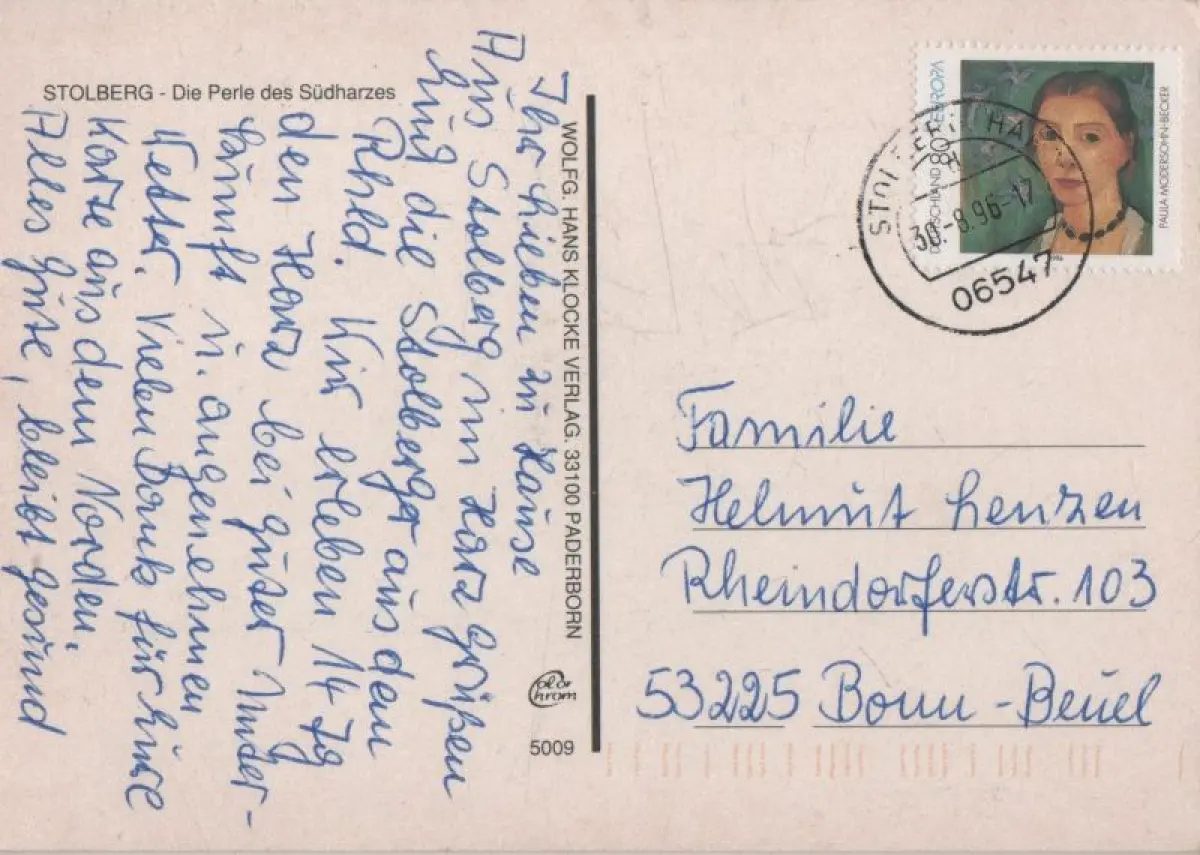 STOLBERG - Die Perle des Südharzes
Ihr Lieben zu Hause
Aus Stolberg im Harz grüßen
Euch die Stolberger aus dem
Rhld. Wir erleben 14 Tg
den Harz bei guter Unter-
kunft u. angenehmen
Wetter. Vielen Dank für Eure
Karte aus dem Norden.
Alles Gute, bleibt gesund
WOLFG. HANS KLOCKE VERLAG. 33100 PADERBORN
5009
EUROPA
DEUTSCHLAND 80
PAULA MODERSOHN-BECKER
30.-8.96-17
06547
Familie
Helmut Lenzen
Rheindorferstr. 103
53225 Bonn-Beuel